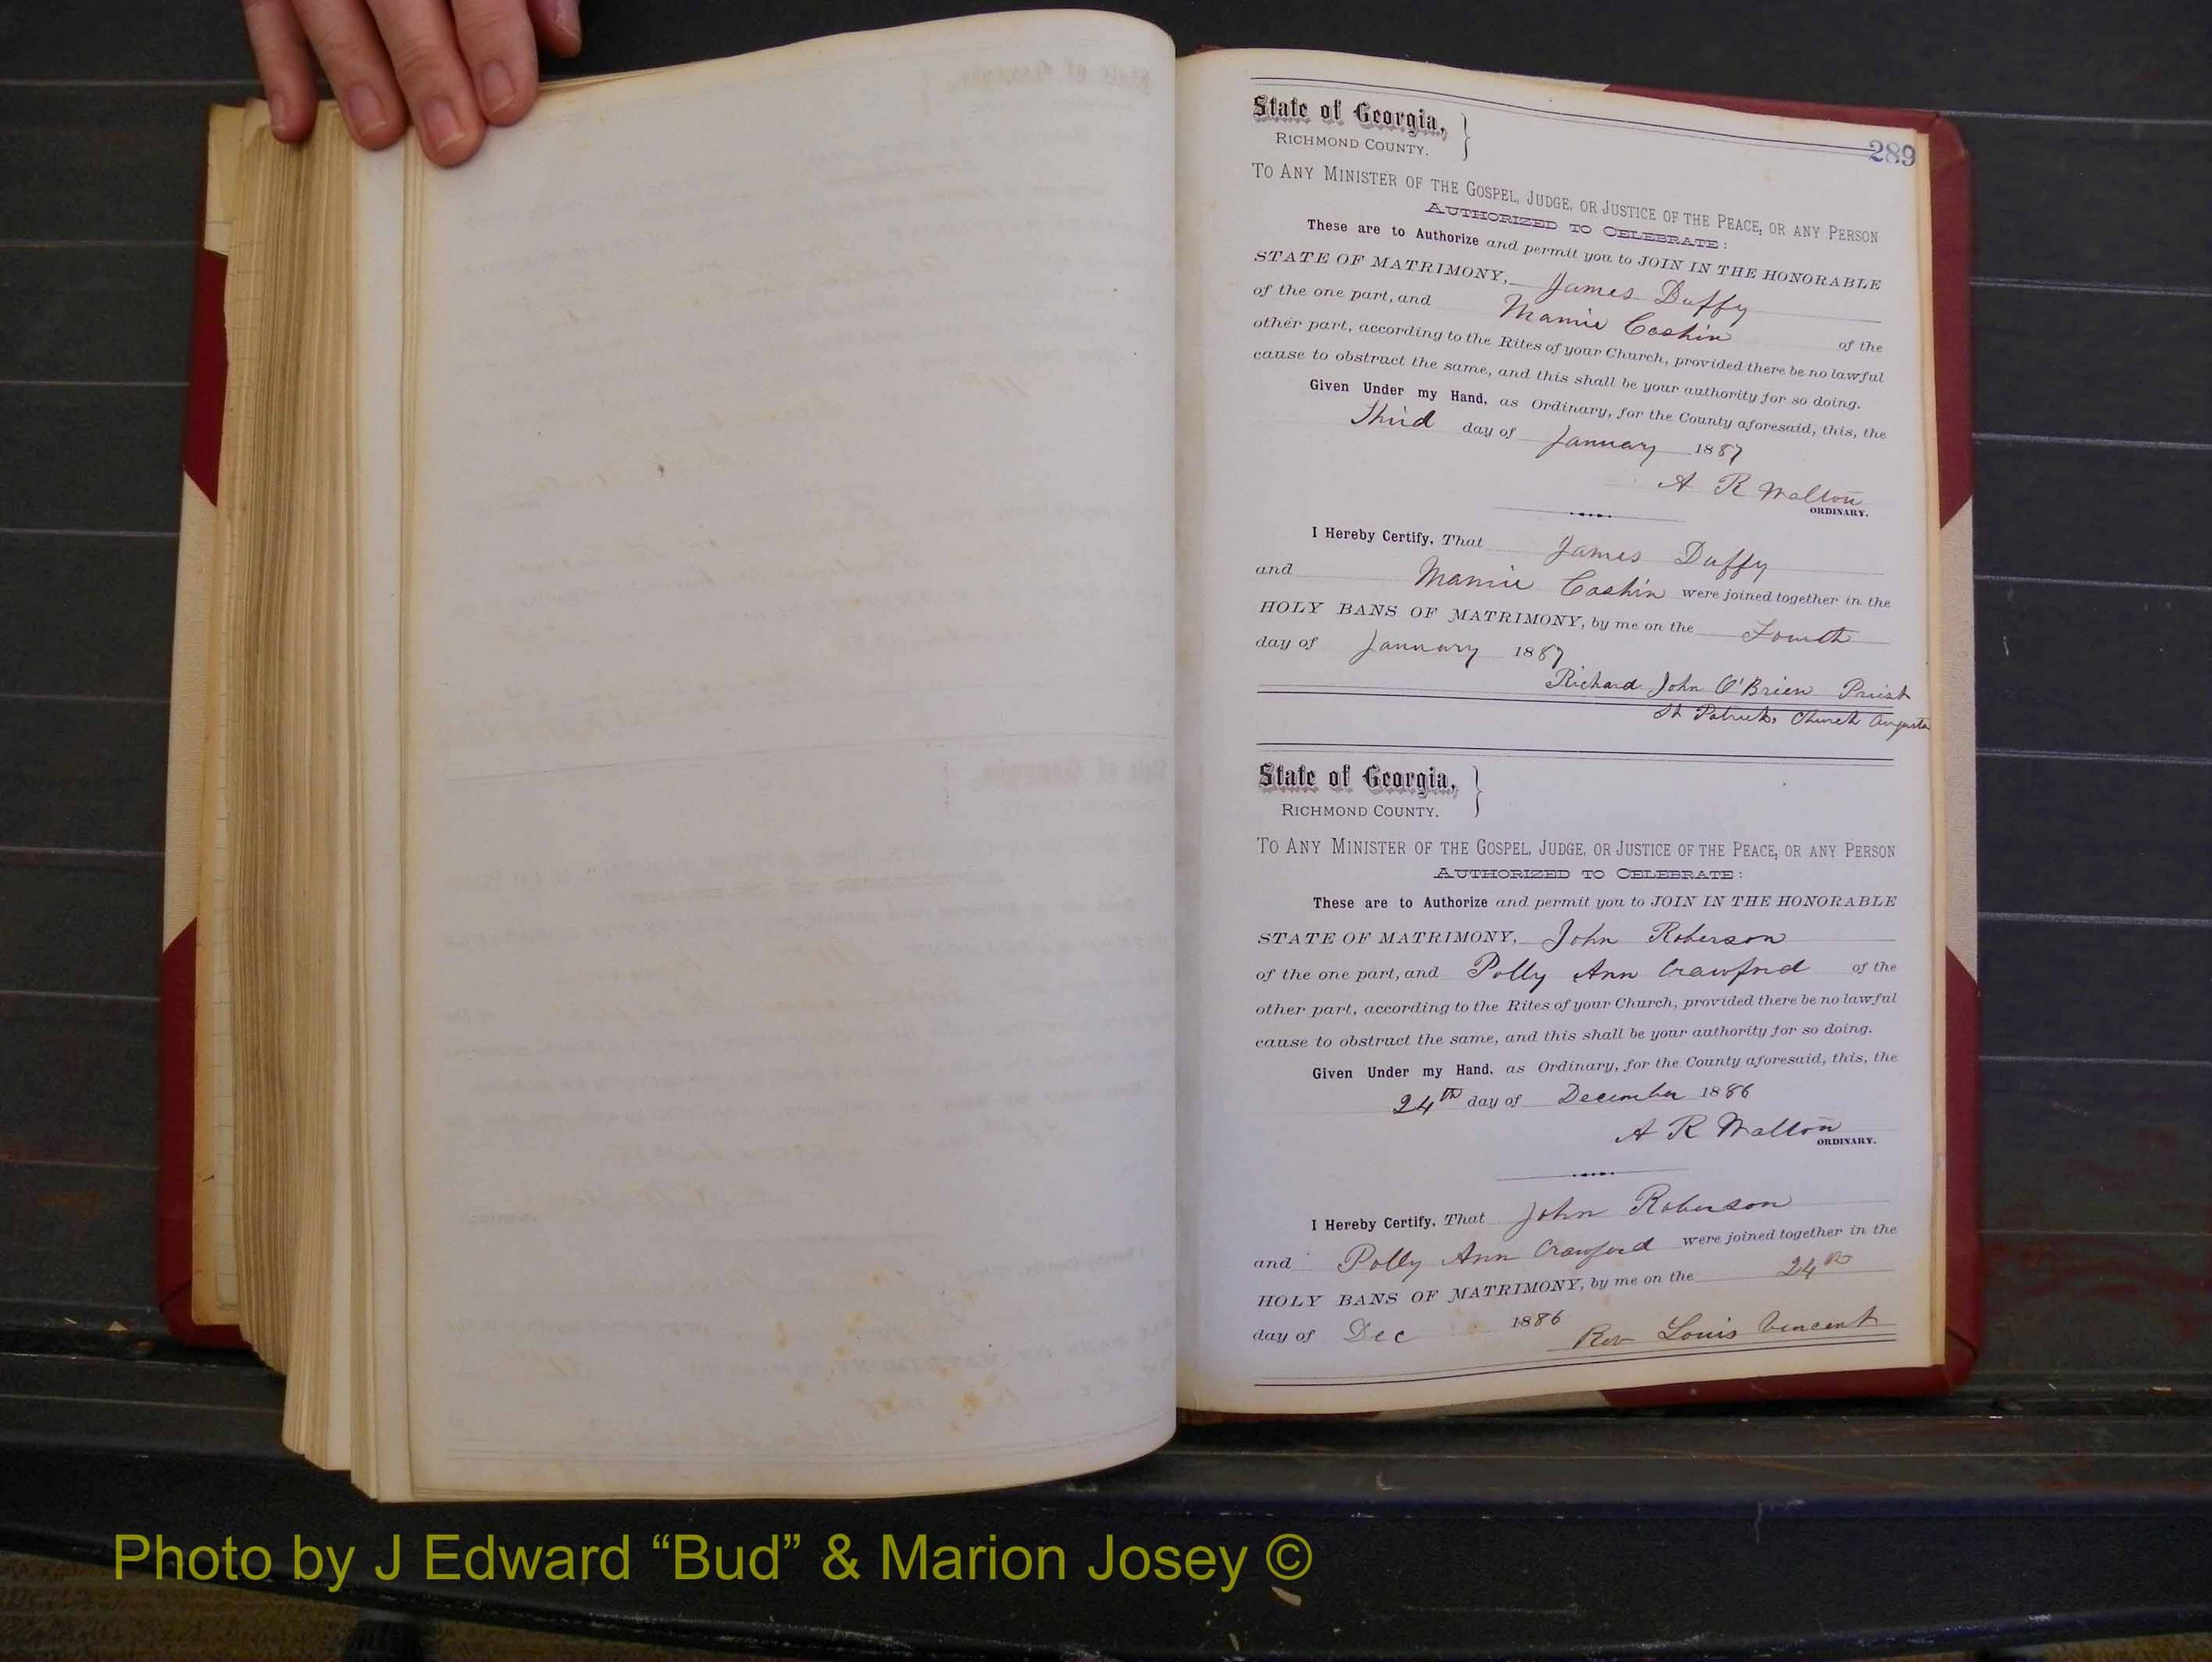 289
State of Georgia,
RICHMOND COUNTY.
TO ANY MINISTER OF THE GOSPEL, JUDGE, OR JUSTICE OF THE PEACE, OR ANY PERSON
AUTHORIZED TO CELEBRATE:
These are to Authorize and permit you to JOIN IN THE HONORABLE
STATE OF MATRIMONY, James Duffy
of the one part, and Mamie Cashin of the
other part, according to the Rites of your Church, provided there be no lawful
cause to obstruct the same, and this shall be your authority for so doing.
Given Under my Hand, as Ordinary, for the County aforesaid, this, the
Third day of January 1887
A R Walton
ORDINARY.
I Hereby Certify, That James Duffy
and Mamie Cashin were joined together in the
HOLY BANS OF MATRIMONY, by me on the Fourth
day of January 1887
Richard John O'Brien Priest
St Patricks Church Augusta
State of Georgia,
RICHMOND COUNTY.
TO ANY MINISTER OF THE GOSPEL, JUDGE, OR JUSTICE OF THE PEACE, OR ANY PERSON
AUTHORIZED TO CELEBRATE:
These are to Authorize and permit you to JOIN IN THE HONORABLE
STATE OF MATRIMONY, John Roberson
of the one part, and Polly Ann Crawford of the
other part, according to the Rites of your Church, provided there be no lawful
cause to obstruct the same, and this shall be your authority for so doing.
Given Under my Hand, as Ordinary, for the County aforesaid, this, the
24th day of December 1886
A R Walton
ORDINARY.
I Hereby Certify, That John Roberson
and Polly Ann Crawford were joined together in the
HOLY BANS OF MATRIMONY, by me on the 24th
day of Dec 1886
Rev Louis Vincent
Photo by J Edward “Bud” & Marion Josey ©